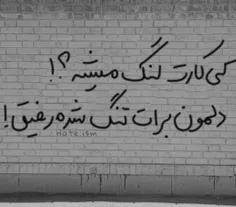 کی کارت لنگ میشه؟!
دلمون برات تنگ شده رفیق!
Hate.ism